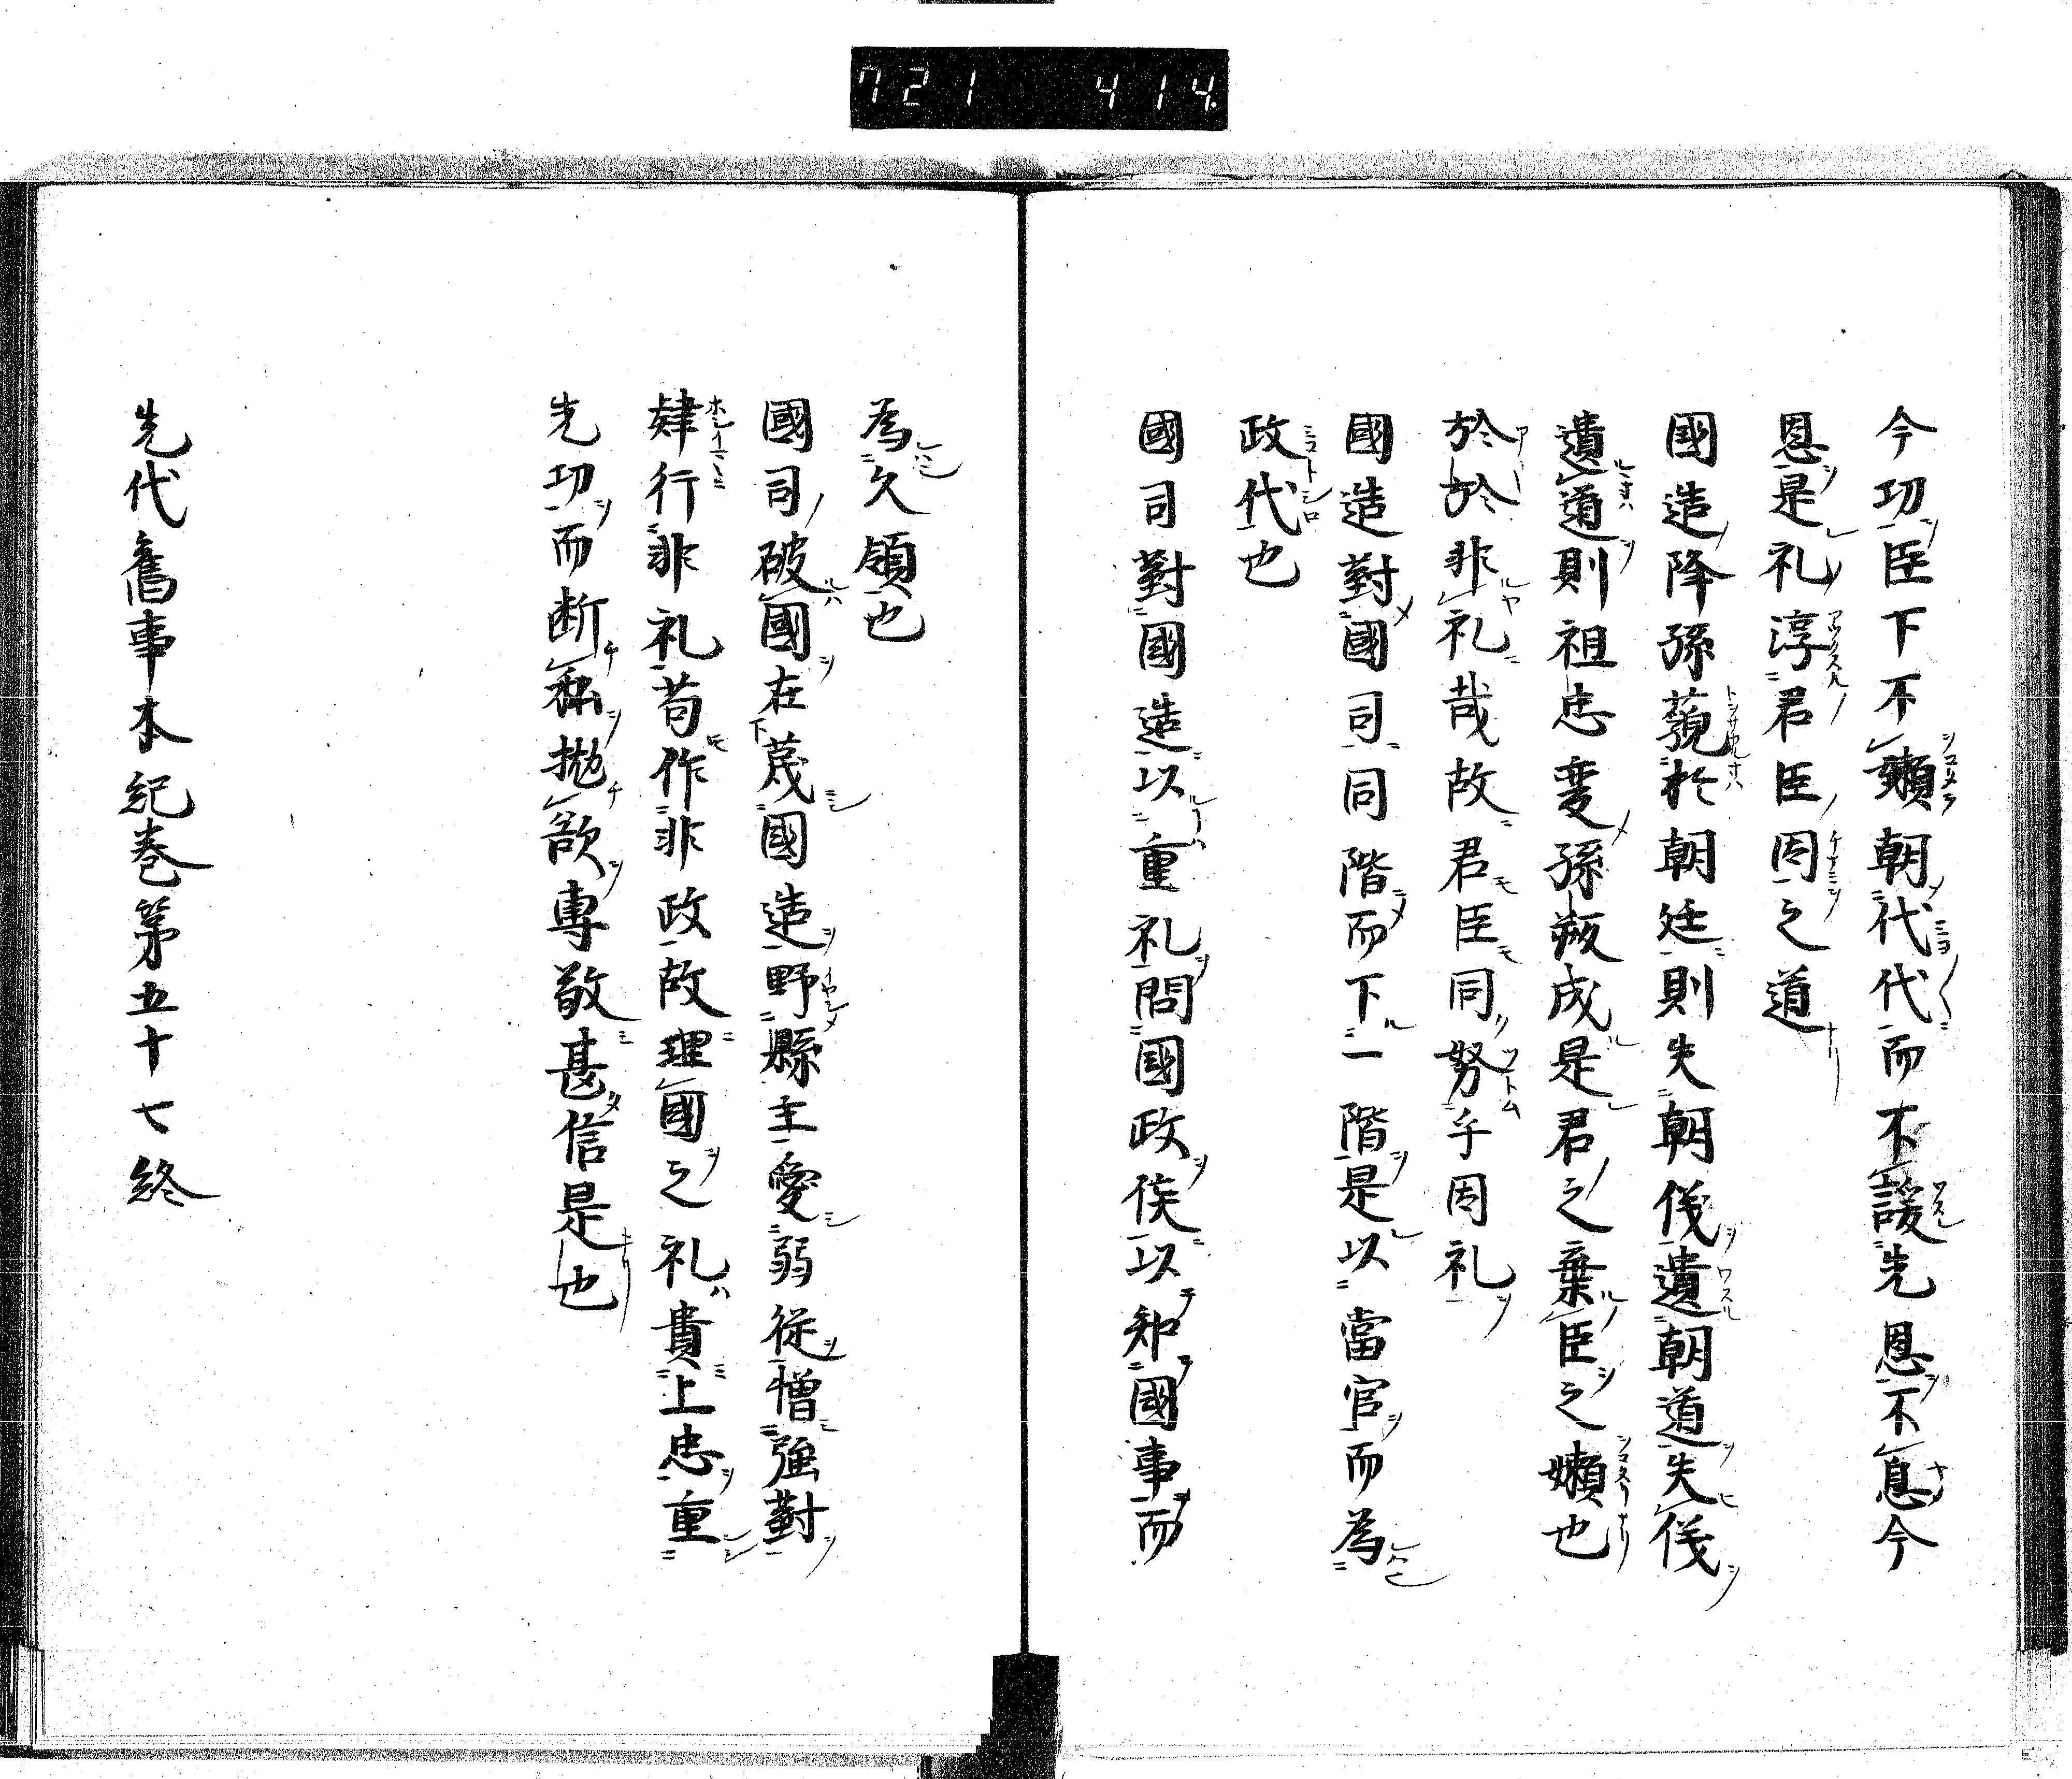 721 414.
今功臣下不嬾朝代代而不諼先恩不息今
恩是礼淳君臣因之道
國造降孫藐於朝廷則失朝儀遺朝道失儀
遺道則祖忠変孫叛成是君之棄臣之嬾也
於於非礼哉故君臣同努乎因礼
國造對國司同階而下一階是以當官而為
政代也
國司對國造以重礼問國政俟以知國事而
為久領也
國司破國在蔑國造野縣主愛弱従憎強對
肆行非礼苟作非政故理國之礼貴上忠重
先功而断私拋欲專敬甚信是也
先代舊事本紀巻第五十七終